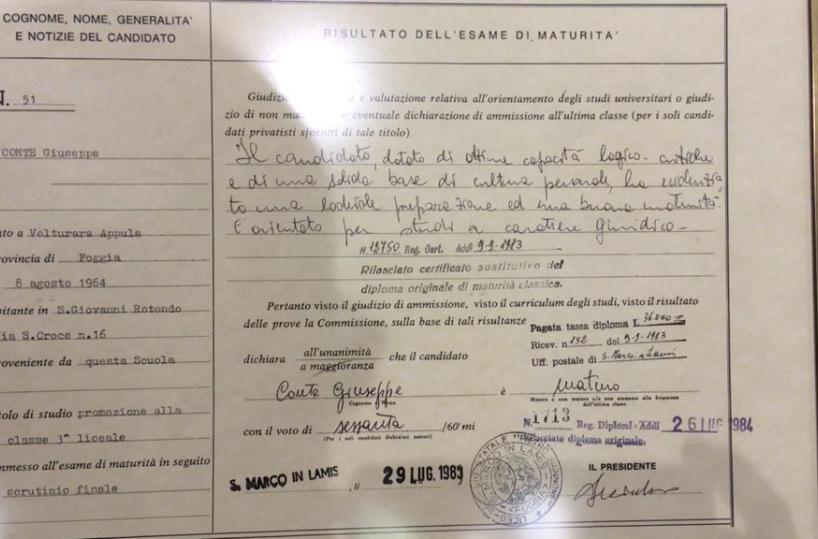 COGNOME, NOME, GENERALITA'
E NOTIZIE DEL CANDIDATO
N. 51
CONTE Giuseppe
ato a Volturara Appula
rovincia di Foggia
8 agosto 1964
itante in S.Giovanni Rotondo
ia S.Croce n.16
oveniente da questa Scuola
tolo di studio promozione alla
classe 3^ liceale
mmesso all'esame di maturità in seguito
scrutinio finale
RISULTATO DELL'ESAME DI MATURITA'
Giudizi e valutazione relativa all'orientamento degli studi universitari o giudi-
zio di non ma eventuale dichiarazione di ammissione all'ultima classe (per i soli candi-
dati privatisti sforniti di tale titolo)
Il candidato, dotato di ottime capacità logico-critiche
e di una solida base di cultura personale, ha evidenzia
to una lodevole preparazione ed una buona maturità.
E' orientato per studi a carattere giuridico-
N 12750 Reg. Cert. Addì 9-9-1983
Rilasciato certificato sostitutivo del
diploma originale di maturità classica.
Pertanto visto il giudizio di ammissione, visto il curriculum degli studi, visto il risultato
delle prove la Commissione, sulla base di tali risultanze
Pagata tassa diploma L.
Ricev. n. 152 del 9-9-1983
Uff. postale di S. Marco in Lamis
dichiara all'unanimità
a maggioranza
che il candidato
Conte Giuseppe è maturo
Cognome Nome
Maturo o non maturo e/o non ammesso alla frequenza
dell'ultima classe
con il voto di sessanta /60mi
(Per i soli candidati dichiarati maturi)
N. 1713 Reg. Diplomi - Addì 26 LUG 1984
Rilasciato diploma originale.
S. MARCO IN LAMIS , lì 29 LUG. 1983
IL PRESIDENTE